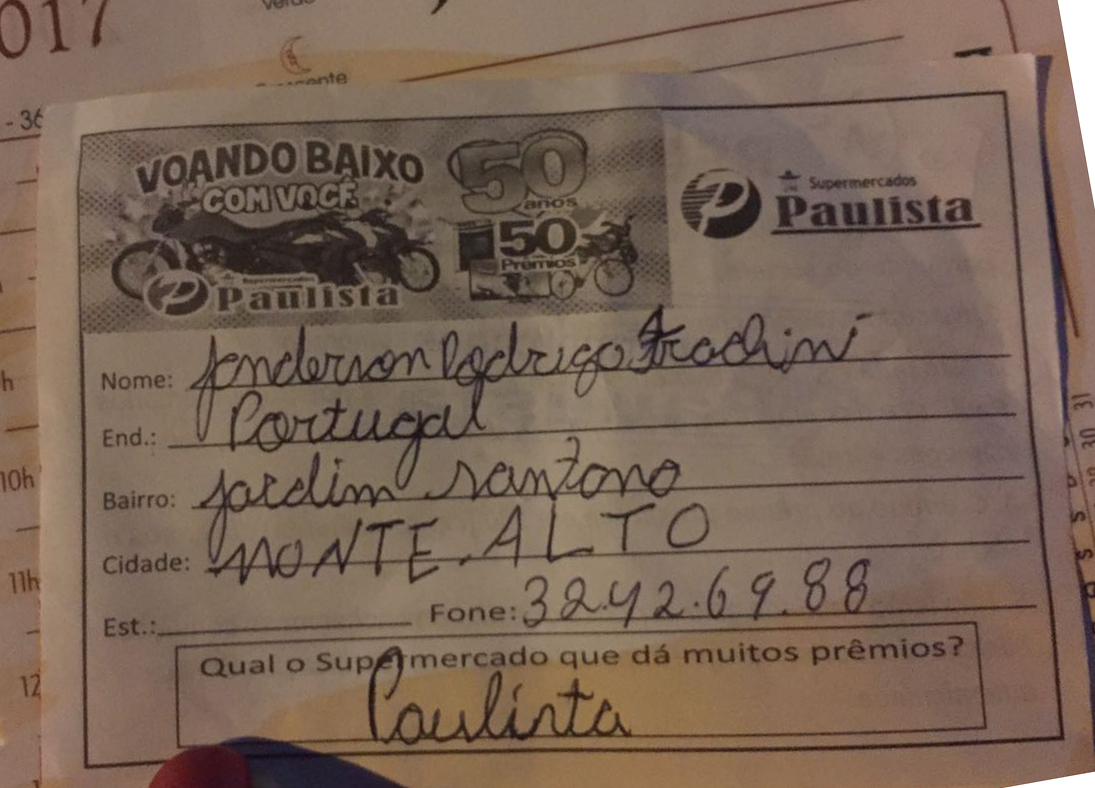 017
Crescente
- 36
VOANDO BAIXO
COM VOCÊ
50
anos
50
Prêmios
Supermercados
Paulista
Supermercados
Paulista
Nome: Janderson Rodrigo
End.: Portugal
Bairro: jardim santono
Cidade: MONTE ALTO
Est.: Fone: 3242.69.88
Qual o Supermercado que dá muitos prêmios?
Paulista
10h
11h
12